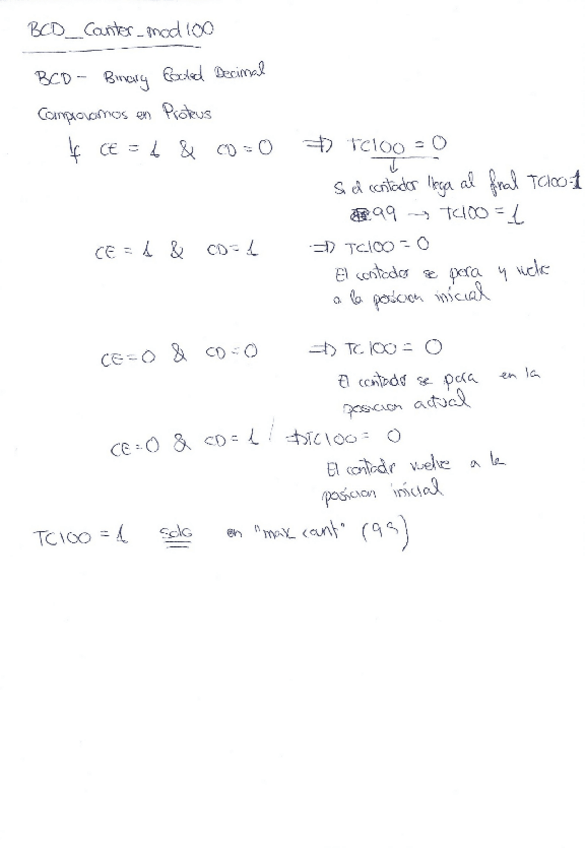 BCD_Counter_mod100
BCD - Binary Coded Decimal
Comprovamos en Proteus
If CE = 1 & CD = 0 ⇒ TC100 = 0
↓
Si el contador llega al final TC100=1
99 → TC100 = 1
CE = 1 & CD = 1 ⇒ TC100 = 0
El contador se para y vuelve
a la posicion inicial
CE = 0 & CD = 0 ⇒ TC100 = 0
El contador se para en la
posicion actual
CE = 0 & CD = 1 ⇒ TC100 = 0
El contador vuelve a la
posicion inicial
TC100 = 1 solo en "max count" (99)